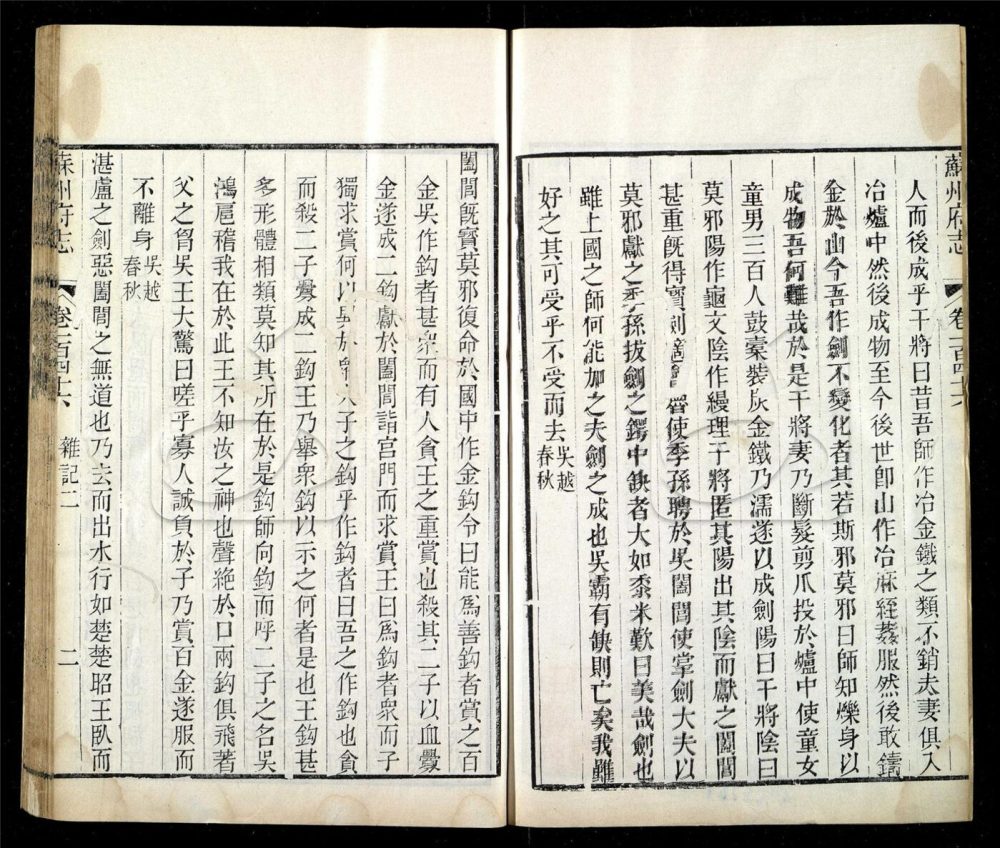 蘇州府志 卷一百四十六
人而後成乎干將曰昔吾師作冶金鐵之類不銷夫妻俱入
冶爐中然後成物至今後世卽山作冶麻絰葌服然後敢鑄
金於山今吾作劍不變化者其若斯邪莫邪曰師知爍身以
成物吾何難哉於是干將妻乃斷髮剪爪投於爐中使童女
童男三百人鼓橐裝灰金鐵乃濡遂以成劍陽曰干將陰曰
莫邪陽作龜文陰作縵理干將匿其陽出其陰而獻之闔閭
甚重旣得寶劍適 使季孫聘於吳闔閭使掌劍大夫以
莫邪獻之季孫拔劍之鍔中缺者大如黍米歎曰美哉劍也
雖上國之師何能加之夫劍之成也吳霸有缺則亡矣我雖
好之其可受乎不受而去吳越春秋
闔閭旣寶莫邪復命於國中作金鈎令曰能爲善鈎者賞之百
金吳作鈎者甚衆而有人貪王之重賞也殺其二子以血釁
金遂成二鈎獻於闔閭詣宮門而求賞王曰爲鈎者衆而子
獨求賞何以異於衆人子之鈎乎作鈎者曰吾之作鈎也貪
而殺二子釁成二鈎王乃舉衆鈎以示之何者是也王鈎甚
多形體相類莫知其所在於是鈎師向鈎而呼二子之名吳
鴻扈稽我在於此王不知汝之神也聲絕於口兩鈎俱飛著
父之胷吳王大驚曰嗟乎寡人誠負於子乃賞百金遂服而
不離身吳越春秋
湛盧之劍惡闔閭之無道也乃去而出水行如楚楚昭王臥而
蘇州府志 卷一百四十六 雜記二 二